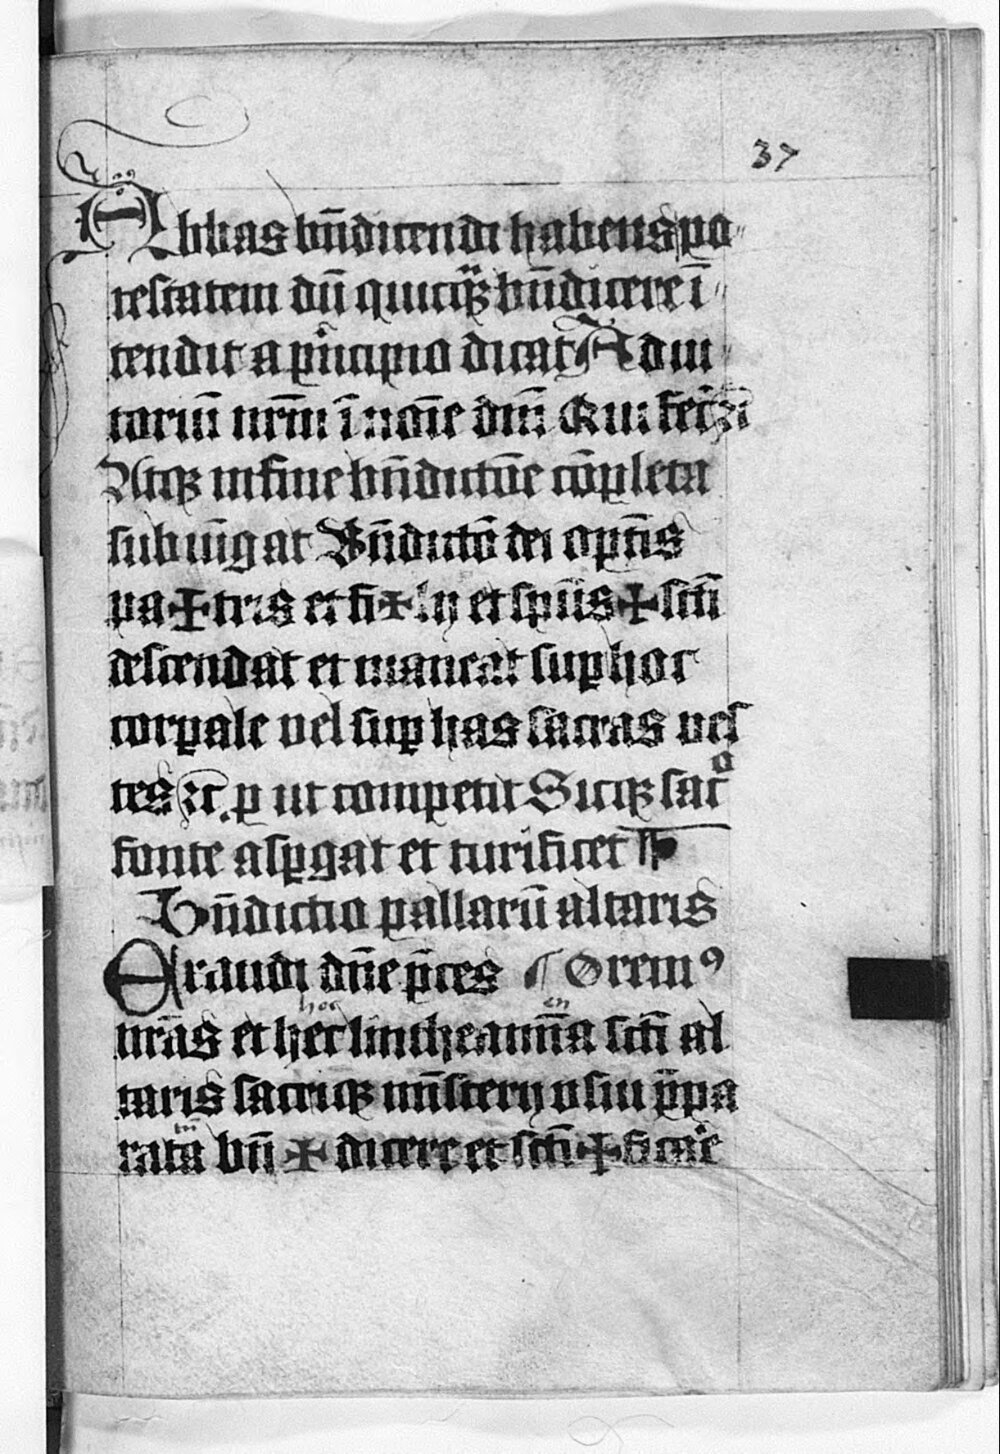 37
Abbas bn̄dicendi habens po〃
testatem dū quicq̈ꝫ bn̄dicere ī〃
tendit a pͥncipio dicat Adiu〃
toriū nrm̄ ī noīe dnī Qui fecͥ ⁊c̄
Atqꝫ in fine bn̄dictōe cōpleta
subiūgat Bn̄dictō dei opn̄tis
pa✠tris et fi✠lij et spūs✠scī
descendat et maneat suꝑ hoc
corꝑale vel suꝑ has sacras ves
tes ⁊c̄. ꝓ ut competit Sicqꝫ sacͦ
fonte asꝑgat et turificet
Bn̄dictio pallarū altaris
Exaudi dn̄e p̄ces ¶ Oremꝰ
hoc en
nrās et hec lintheamīa scī al
taris sacriqꝫ mīsterij vsui p̄pa
tū
rata bn̄ ✠ dicere et scī✠ficaͬe